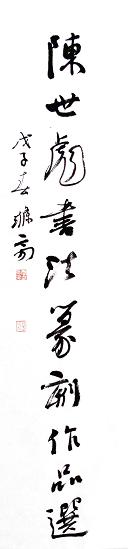 陳世彪書法篆刻作品選
戊子春